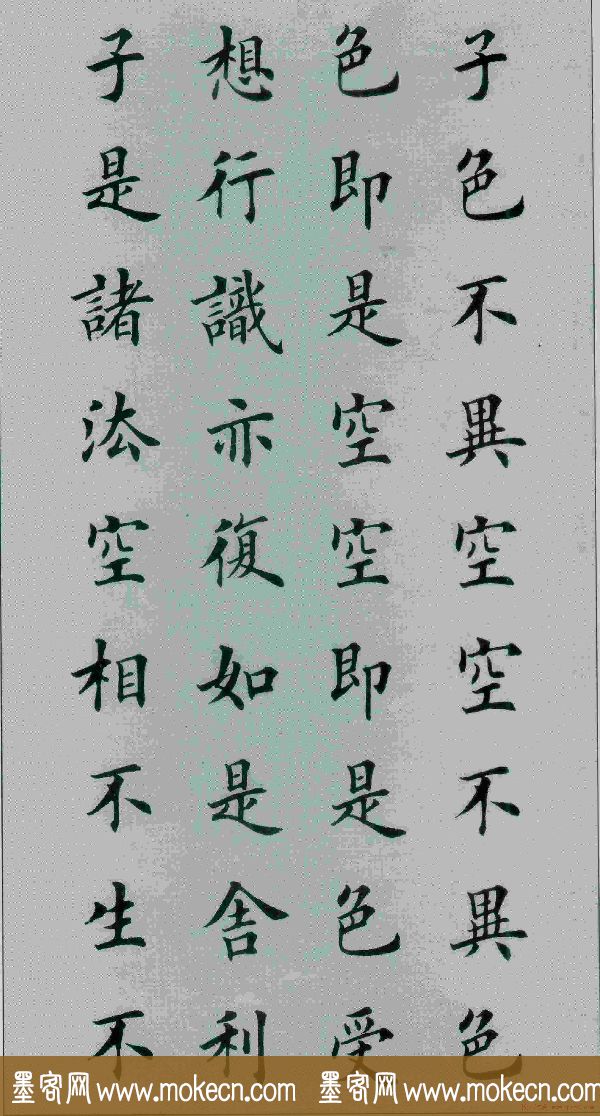 子色不異空空不異色
色即是空空即是色受
想行識亦復如是舍利
子是諸法空相不生不
墨客网 www.mokecn.com 墨客网 www.mokecn.com